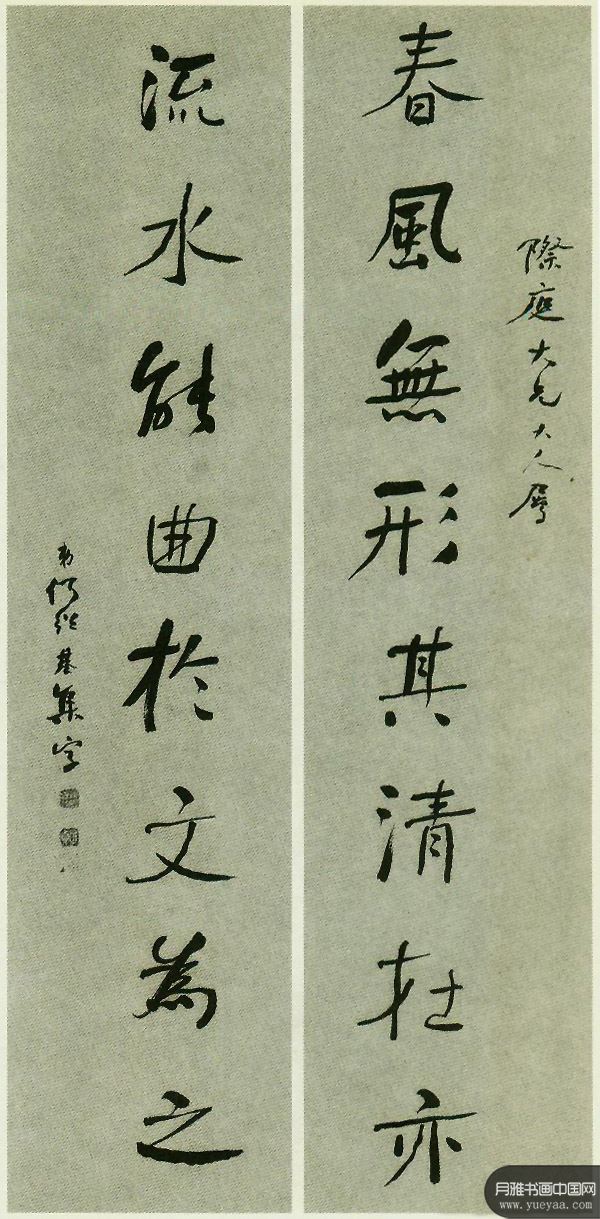 際庭大兄大人屬
春風無形其清在亦
流水能曲於文為之
弟何維基集字
月雅书画中国网
www.yueyaa.com